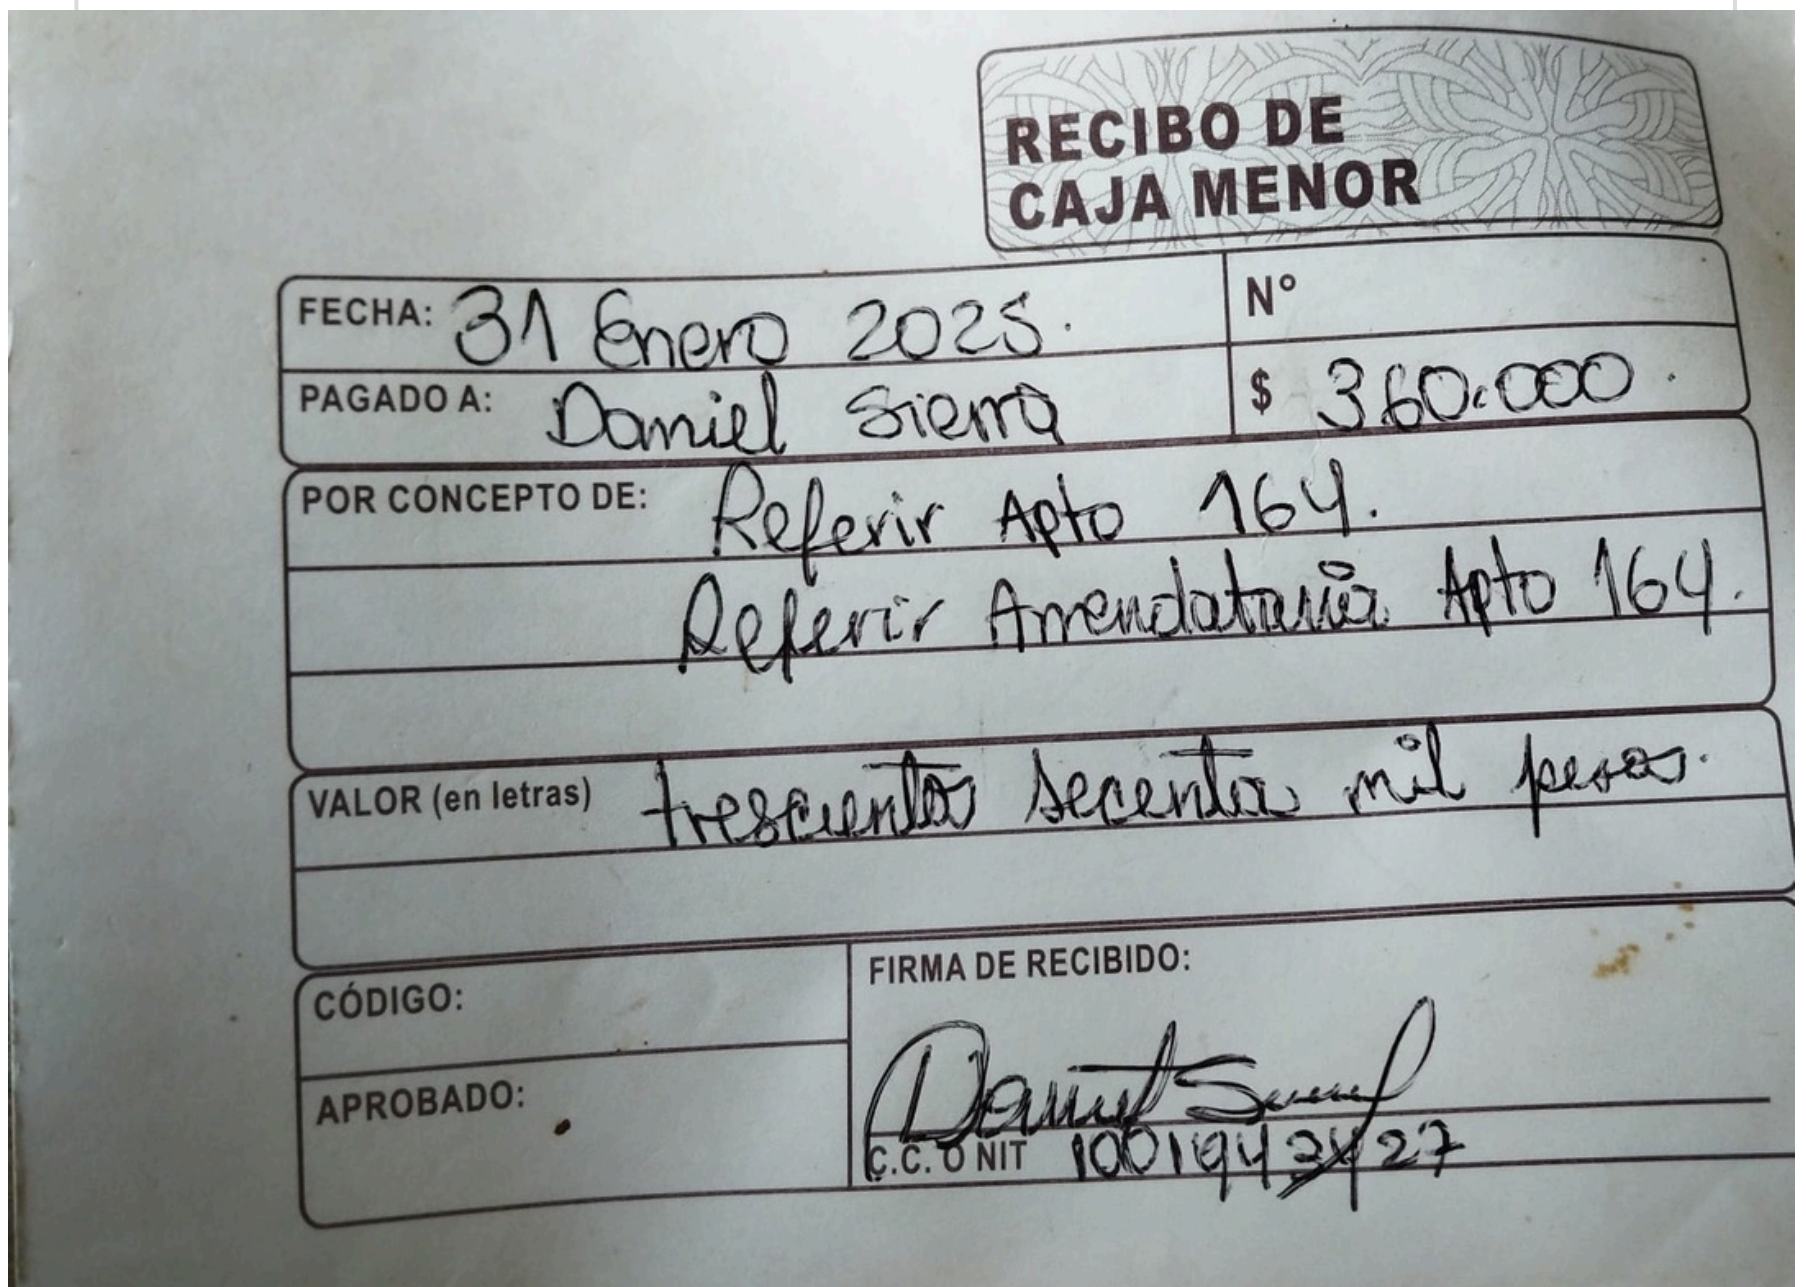 RECIBO DE
CAJA MENOR
FECHA: 31 Enero 2025.
N°
PAGADO A: Daniel Sierra
$ 360.000.
POR CONCEPTO DE: Referir Apto 164.
Referir Arrendataria Apto 164.
VALOR (en letras) trescientos secenta mil pesos.
CÓDIGO:
FIRMA DE RECIBIDO:
APROBADO:
C.C. O NIT